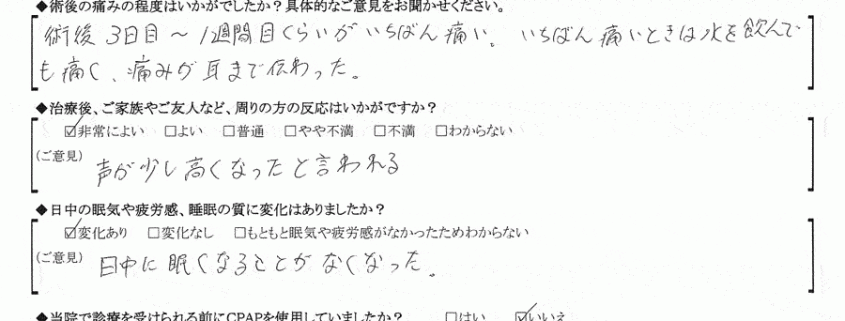 ◆術後の痛みの程度はいかがでしたか？具体的なご意見をお聞かせください。
術後3日目～1週間目くらいがいちばん痛い。いちばん痛いときは水を飲んで
も痛く、痛みが耳まで伝わった。
◆治療後、ご家族やご友人など、周りの方の反応はいかがですか？
☑非常によい □よい □普通 □やや不満 □不満 □わからない
(ご意見) 声が少し高くなったと言われる
◆日中の眠気や疲労感、睡眠の質に変化はありましたか？
☑変化あり □変化なし □もともと眠気や疲労感がなかったためわからない
(ご意見) 日中に眠くなることがなくなった。
◆当院で診療を受けられる前にCPAPを使用していましたか？ □はい ☑いいえ